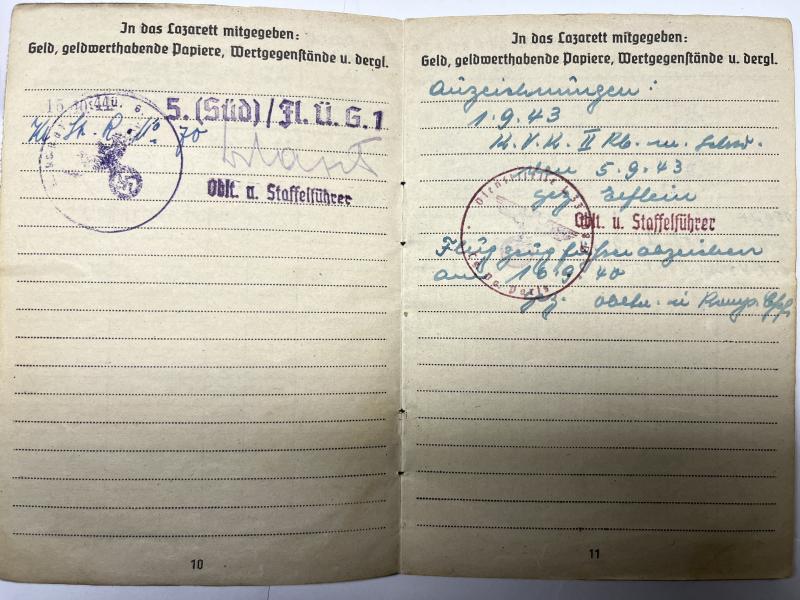 In das Lazarett mitgegeben:
Geld, geldwerthabende Papiere, Wertgegenstände u. dergl.
5. (Süd)/Fl. Ü. G. 1
70
Oblt. u. Staffelführer
10
In das Lazarett mitgegeben:
Geld, geldwerthabende Papiere, Wertgegenstände u. dergl.
Auszeichnungen:
1.9.43
K. V. K. II Kl. m. Schw.
den 5.9.43
gez.
Oblt. u. Staffelführer
Flugzeugführerabzeichen
am 16.9.40
gez. Obltn. u. Komp. Chef
11